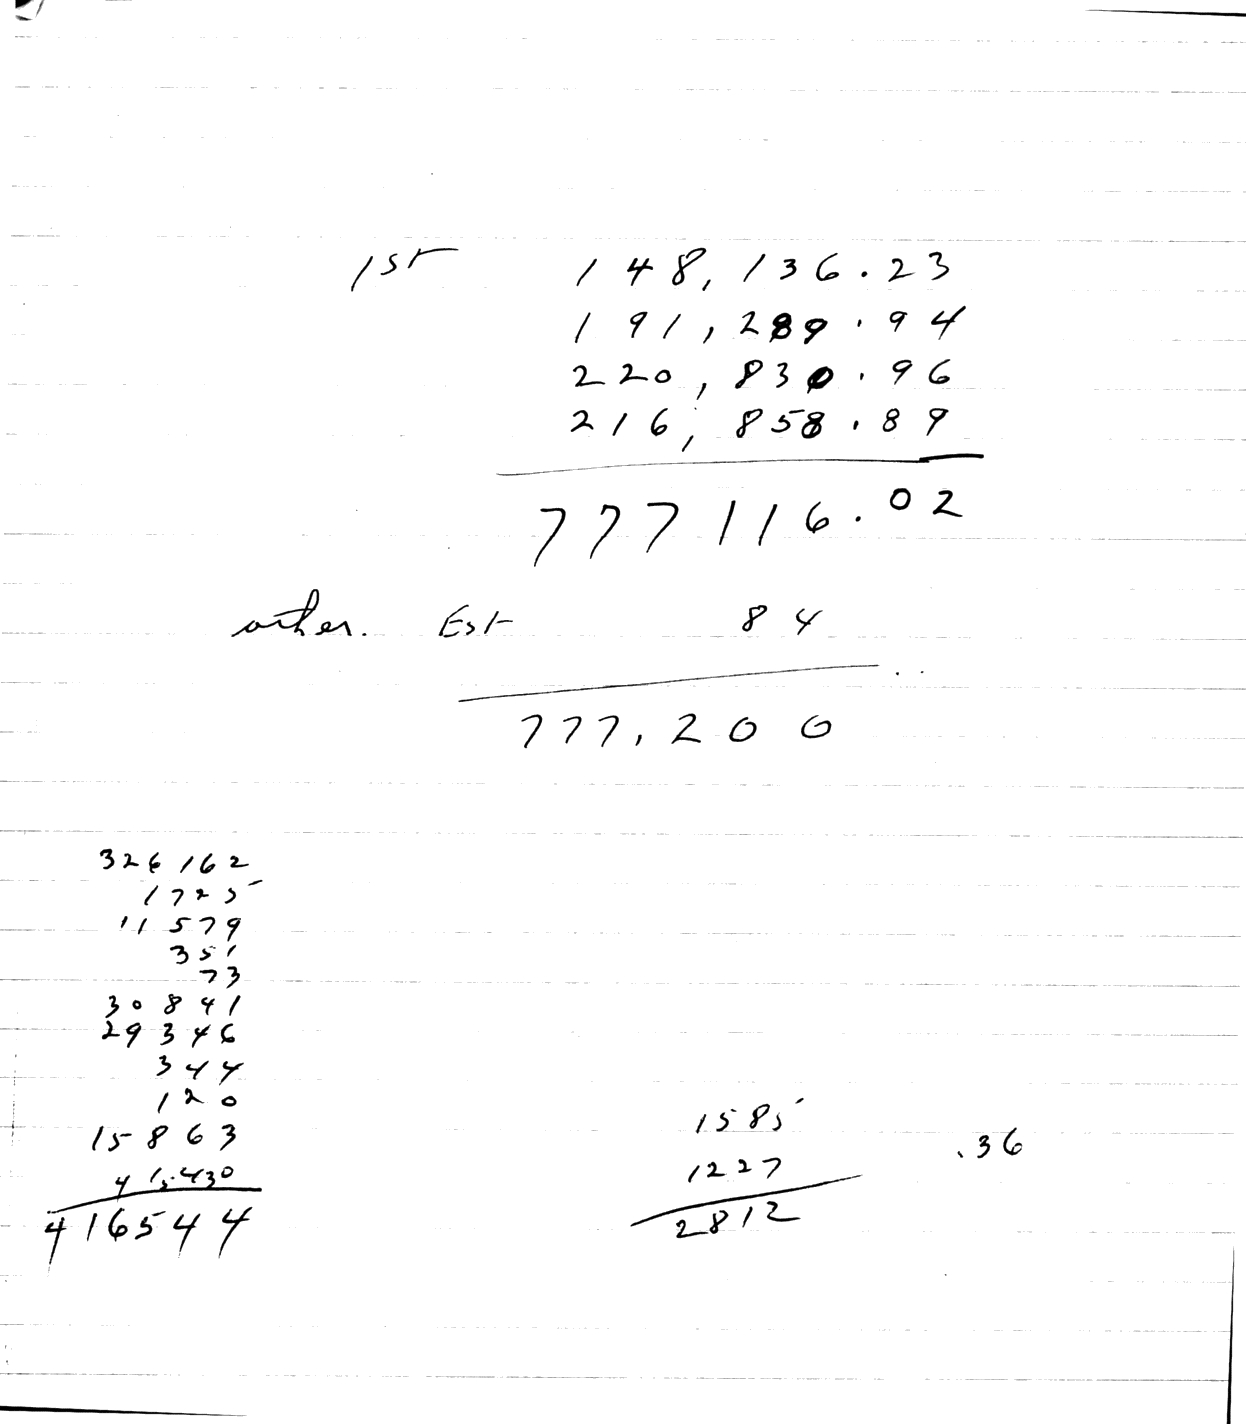 1st 148,136.23
191,289.94
220,830.96
216,858.89
777116.02
other. Est 84
777,200
326162
1725
11579
351
73
30841
29346
344
120
15863
416544
1585
1227
.36
2812